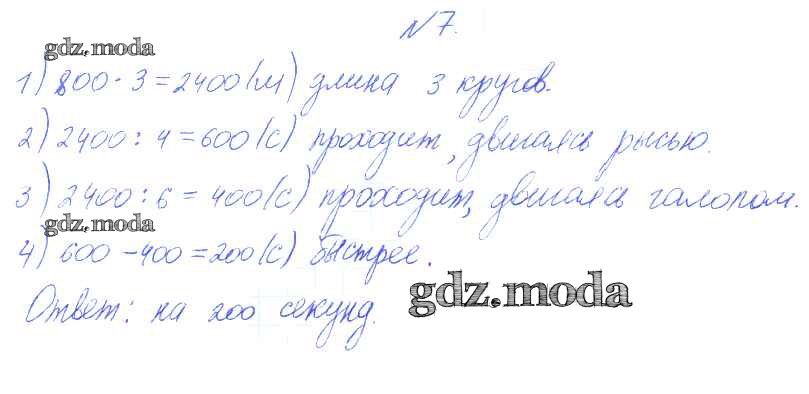 №7.
gdz.moda
1) 800 · 3 = 2400 (м) длина 3 кругов.
2) 2400 : 4 = 600 (с) проходит, двигаясь рысью.
3) 2400 : 6 = 400 (с) проходит, двигаясь галопом.
gdz.moda
4) 600 - 400 = 200 (с) быстрее.
Ответ: на 200 секунд.
gdz.moda